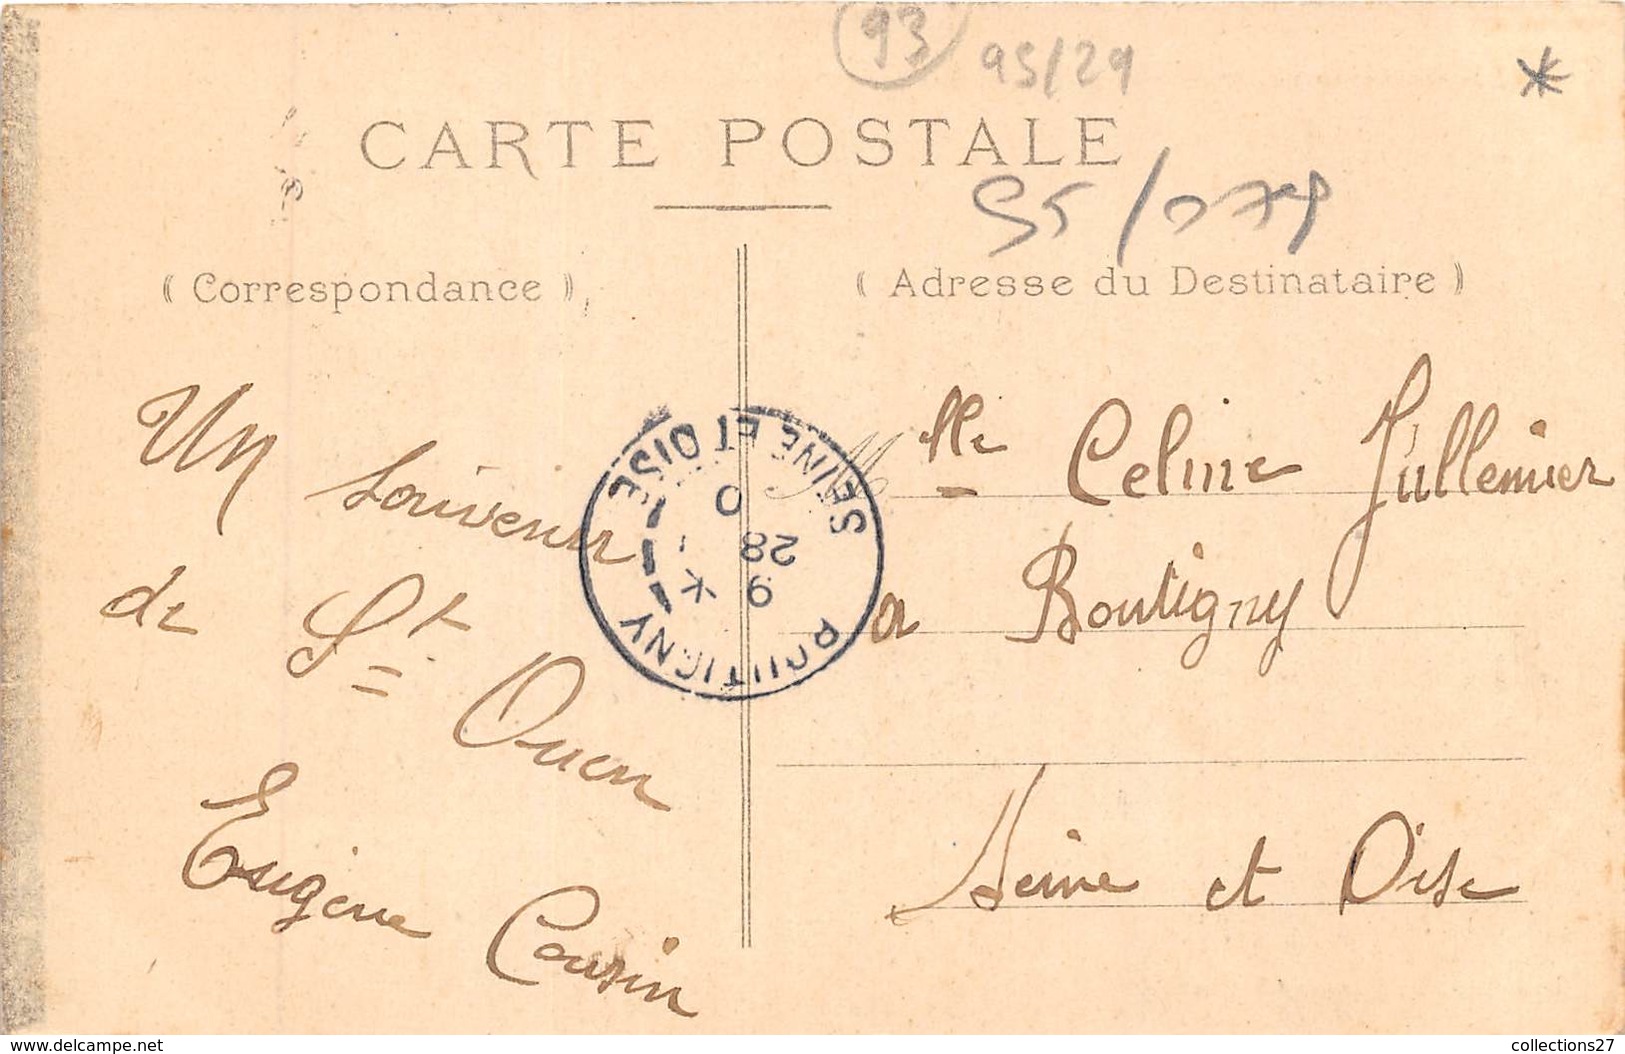 93
95/29
CARTE POSTALE
( Correspondance )
( Adresse du Destinataire )
Un
Souvenir
de St
Ouen
Eugène
Cousin
Mlle Celine Jullemier
a Boutigny
Seine et Oise
BOUTIGNY
SEINE ET OISE
9
28
delcampe.net
collections27